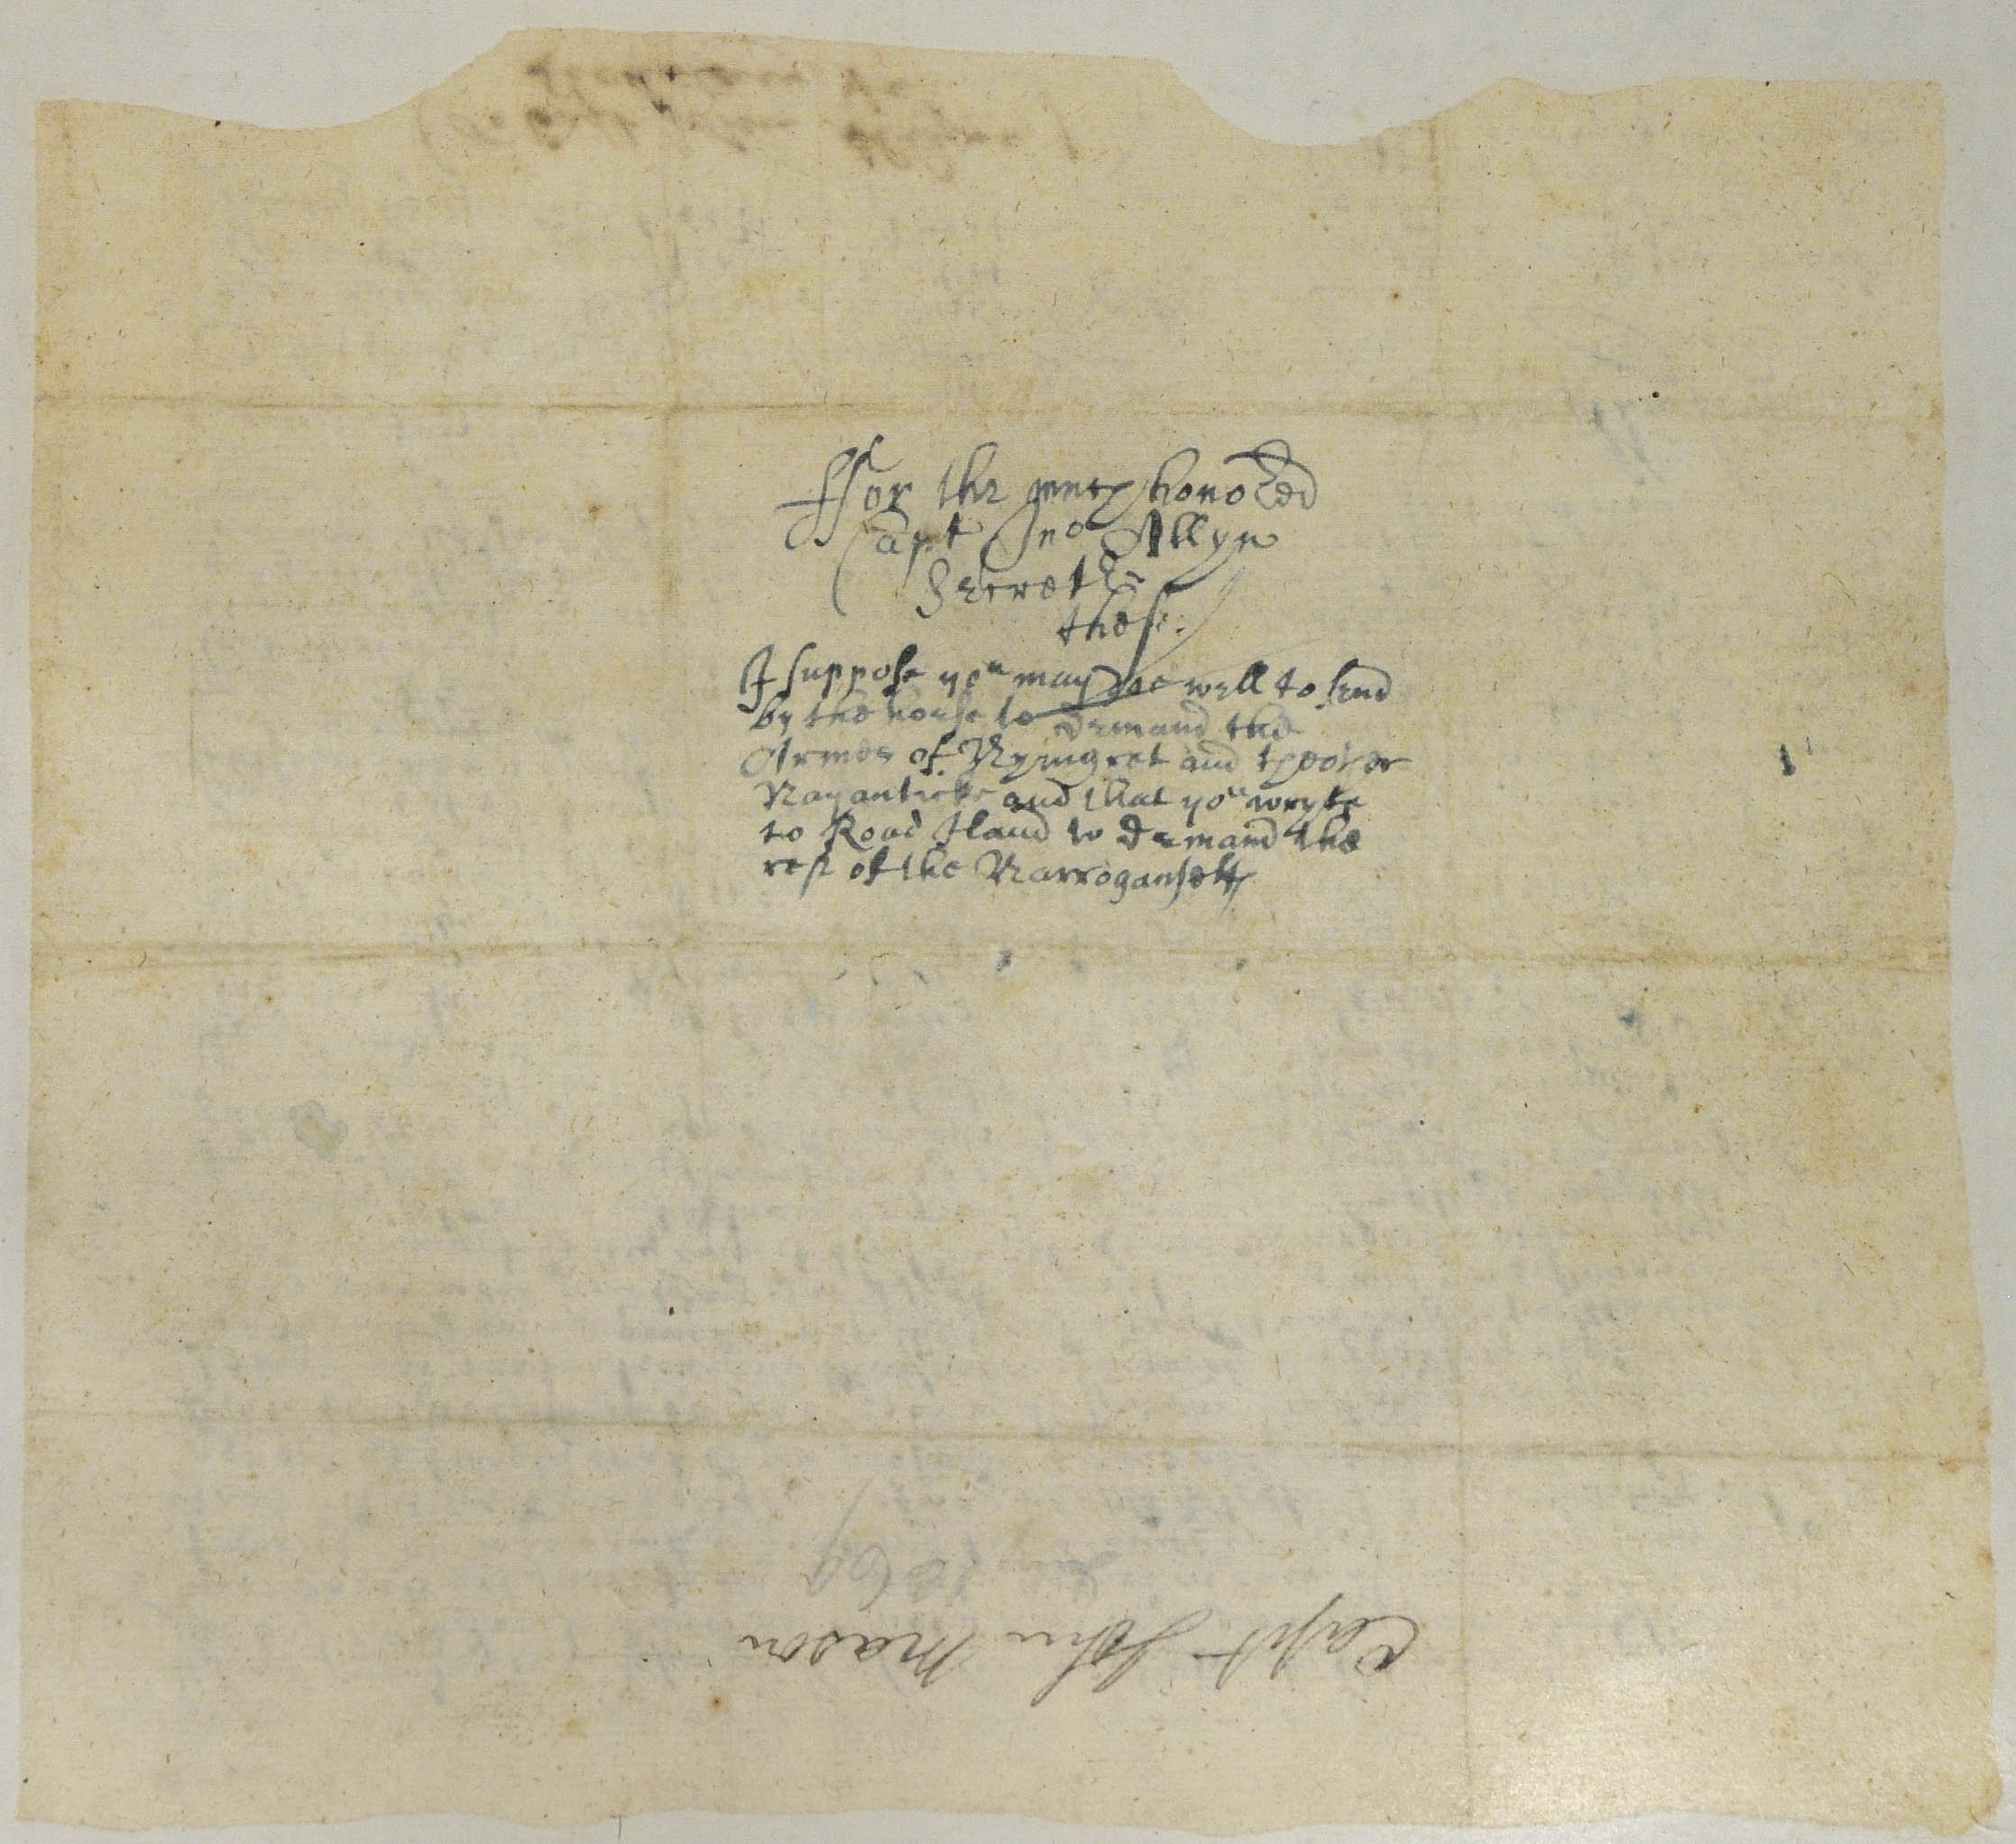 ffor the much honored
Capt Jno Allyn
Secret:
these.
I suppose you may doe well to send
by the horse to demand the
Armes of Nyngret and
Nayanticke and that you wryte
to Road Iland to demand the
rest of the Narrogansetts
1669
Capt John Mason